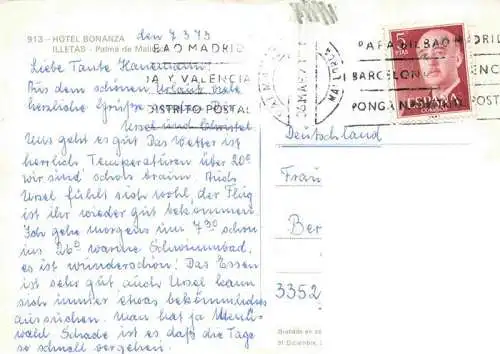 913 - HOTEL BONANZA
ILLETAS - Palma de
den 7.3.73
Liebe Tante
Aus dem schönen Urlaub viele
herzliche Grüße
Ursel und Christel
Uns geht es gut Das Wetter ist
herrlich Temperaturen über 20°
wir sind schon braun. Auch
Ursel fühlt sich wohl, der Flug
ist ihr wieder gut bekommen
Ich gehe morgens um 7 30 schon
ins 26° warme Schwimmbad,
es ist wunderschön! Das Essen
ist sehr gut auch Ursel kann
sich immer etwas bekömmliches
aussuchen. Man hat ja Menü-
wahl Schade ist es daß die Tage
so schnell vergehen.
BAO MADRID
A Y VALENCIA
DISTRITO POSTAL
PARA BILBAO MADRID
BARCELONA
PONGA N
5
PTAS
Deutschland
Frau
Ber
3352